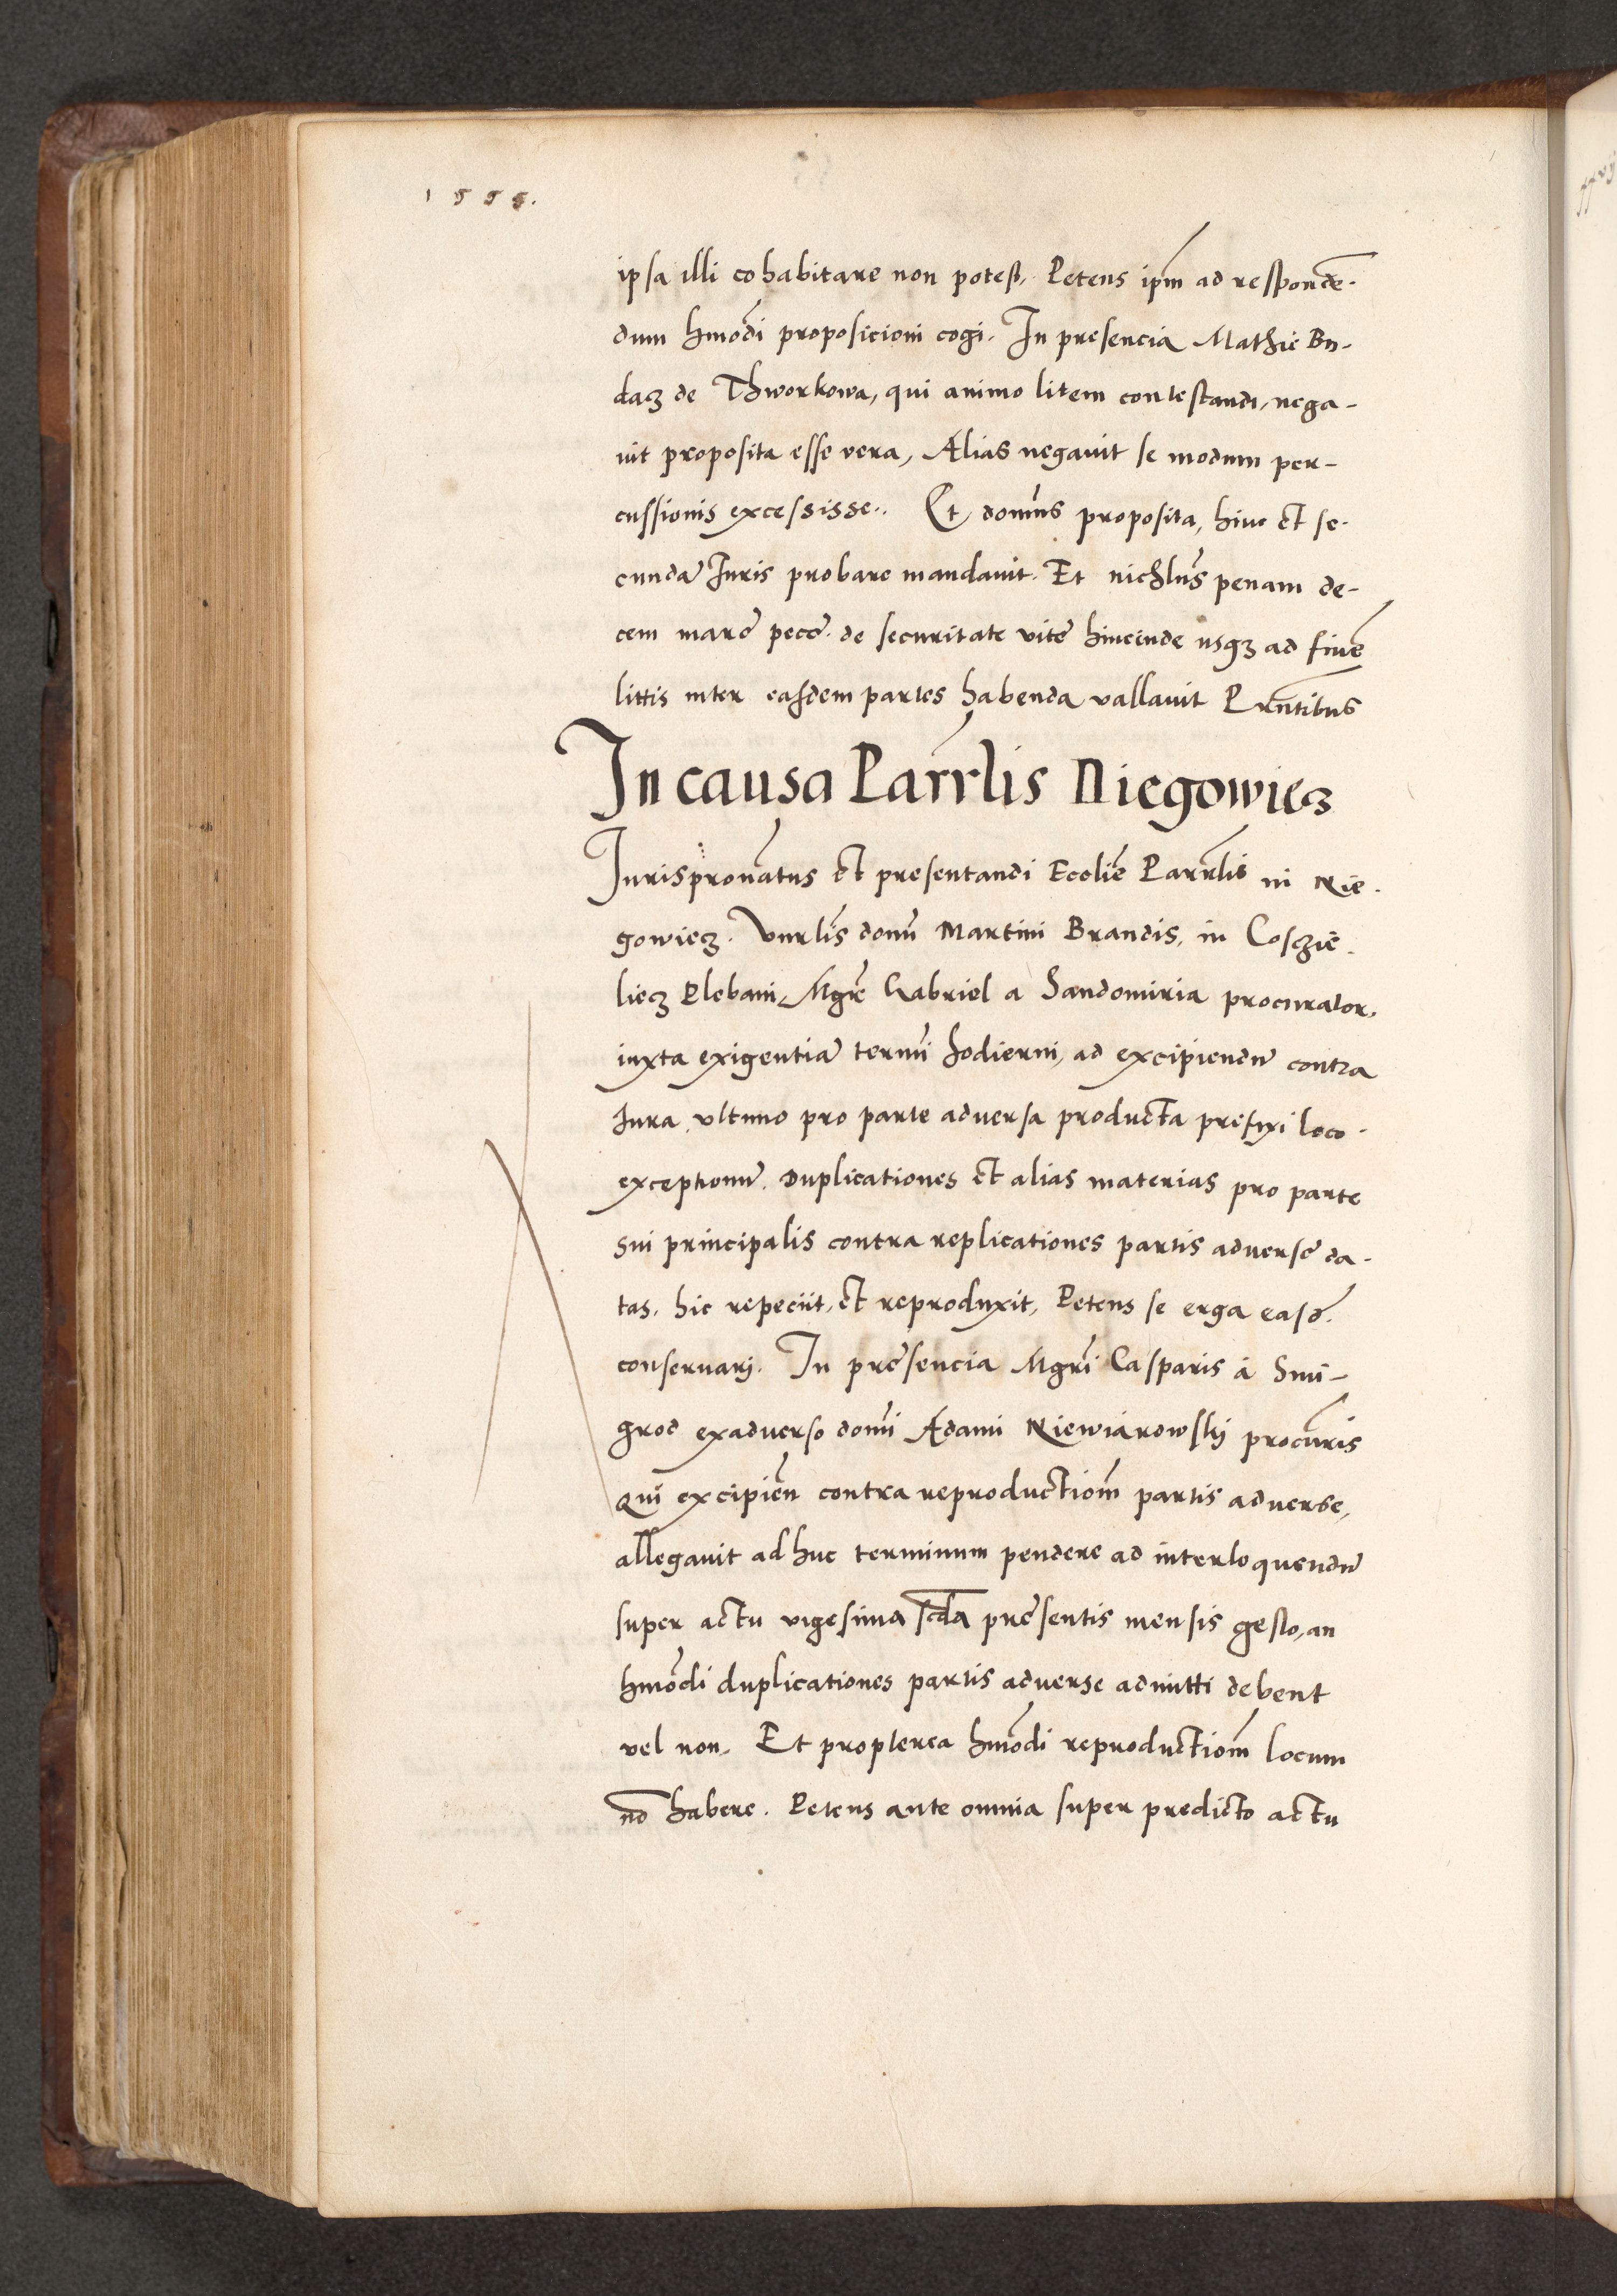 1555.
ipsa illi cohabitare non potest. Petens ipm̄ ad respondē-
dum hmōdi proposicioni cogi. In presencia Mathie Bu-
dacz de Thworkowa, qui animo litem contestandi, nega-
uit proposita esse vera, Alias negauit se modum per-
cussionis excessisse. Et domīns proposita, hinc et se-
cundā Iuris probare mandauit. Et nichlūs penam de-
cem marc̄ pecc̄. de securitate vite hincinde usqz ad finē
littis inter easdem partes habenda vallauit Prn̄tibus
In causa Parrlīs Niegowicz
Jurispronātus et presentandi Ecclīe Parrlīs in Nie-
gowicz. Vnrlīs domī Martini Brandis, in Coscziē-
liecz Plebani, Mgr̄ Gabriel a Sandomiria procurator,
iuxta exigentiā termī hodierni, ad excipiendū contra
Iura vltimo pro parte aduersa producta prefixi loco
exceptionū. Duplicationes et alias materias pro parte
sui principalis contra replicationes partis aduerse da-
tas. hic repeciit, et reproduxit, Petens se erga easd̄.
conseruarj. In presencia Mgrī Casparis à Smi-
grod exaduerso domī Adami Niewiarowskj procūris
Qui excipiēn contra reproductiōm partis aduerse,
allegauit adhuc terminum pendere ad interloquendū
super actu vigesima scd̄a presentis mensis gesto, an
hmōdi duplicationes partis aduerse admitti debent
vel non. Et propterea hmōdi reproductiōm locum
nō habere. Petens ante omnia super predicto actu